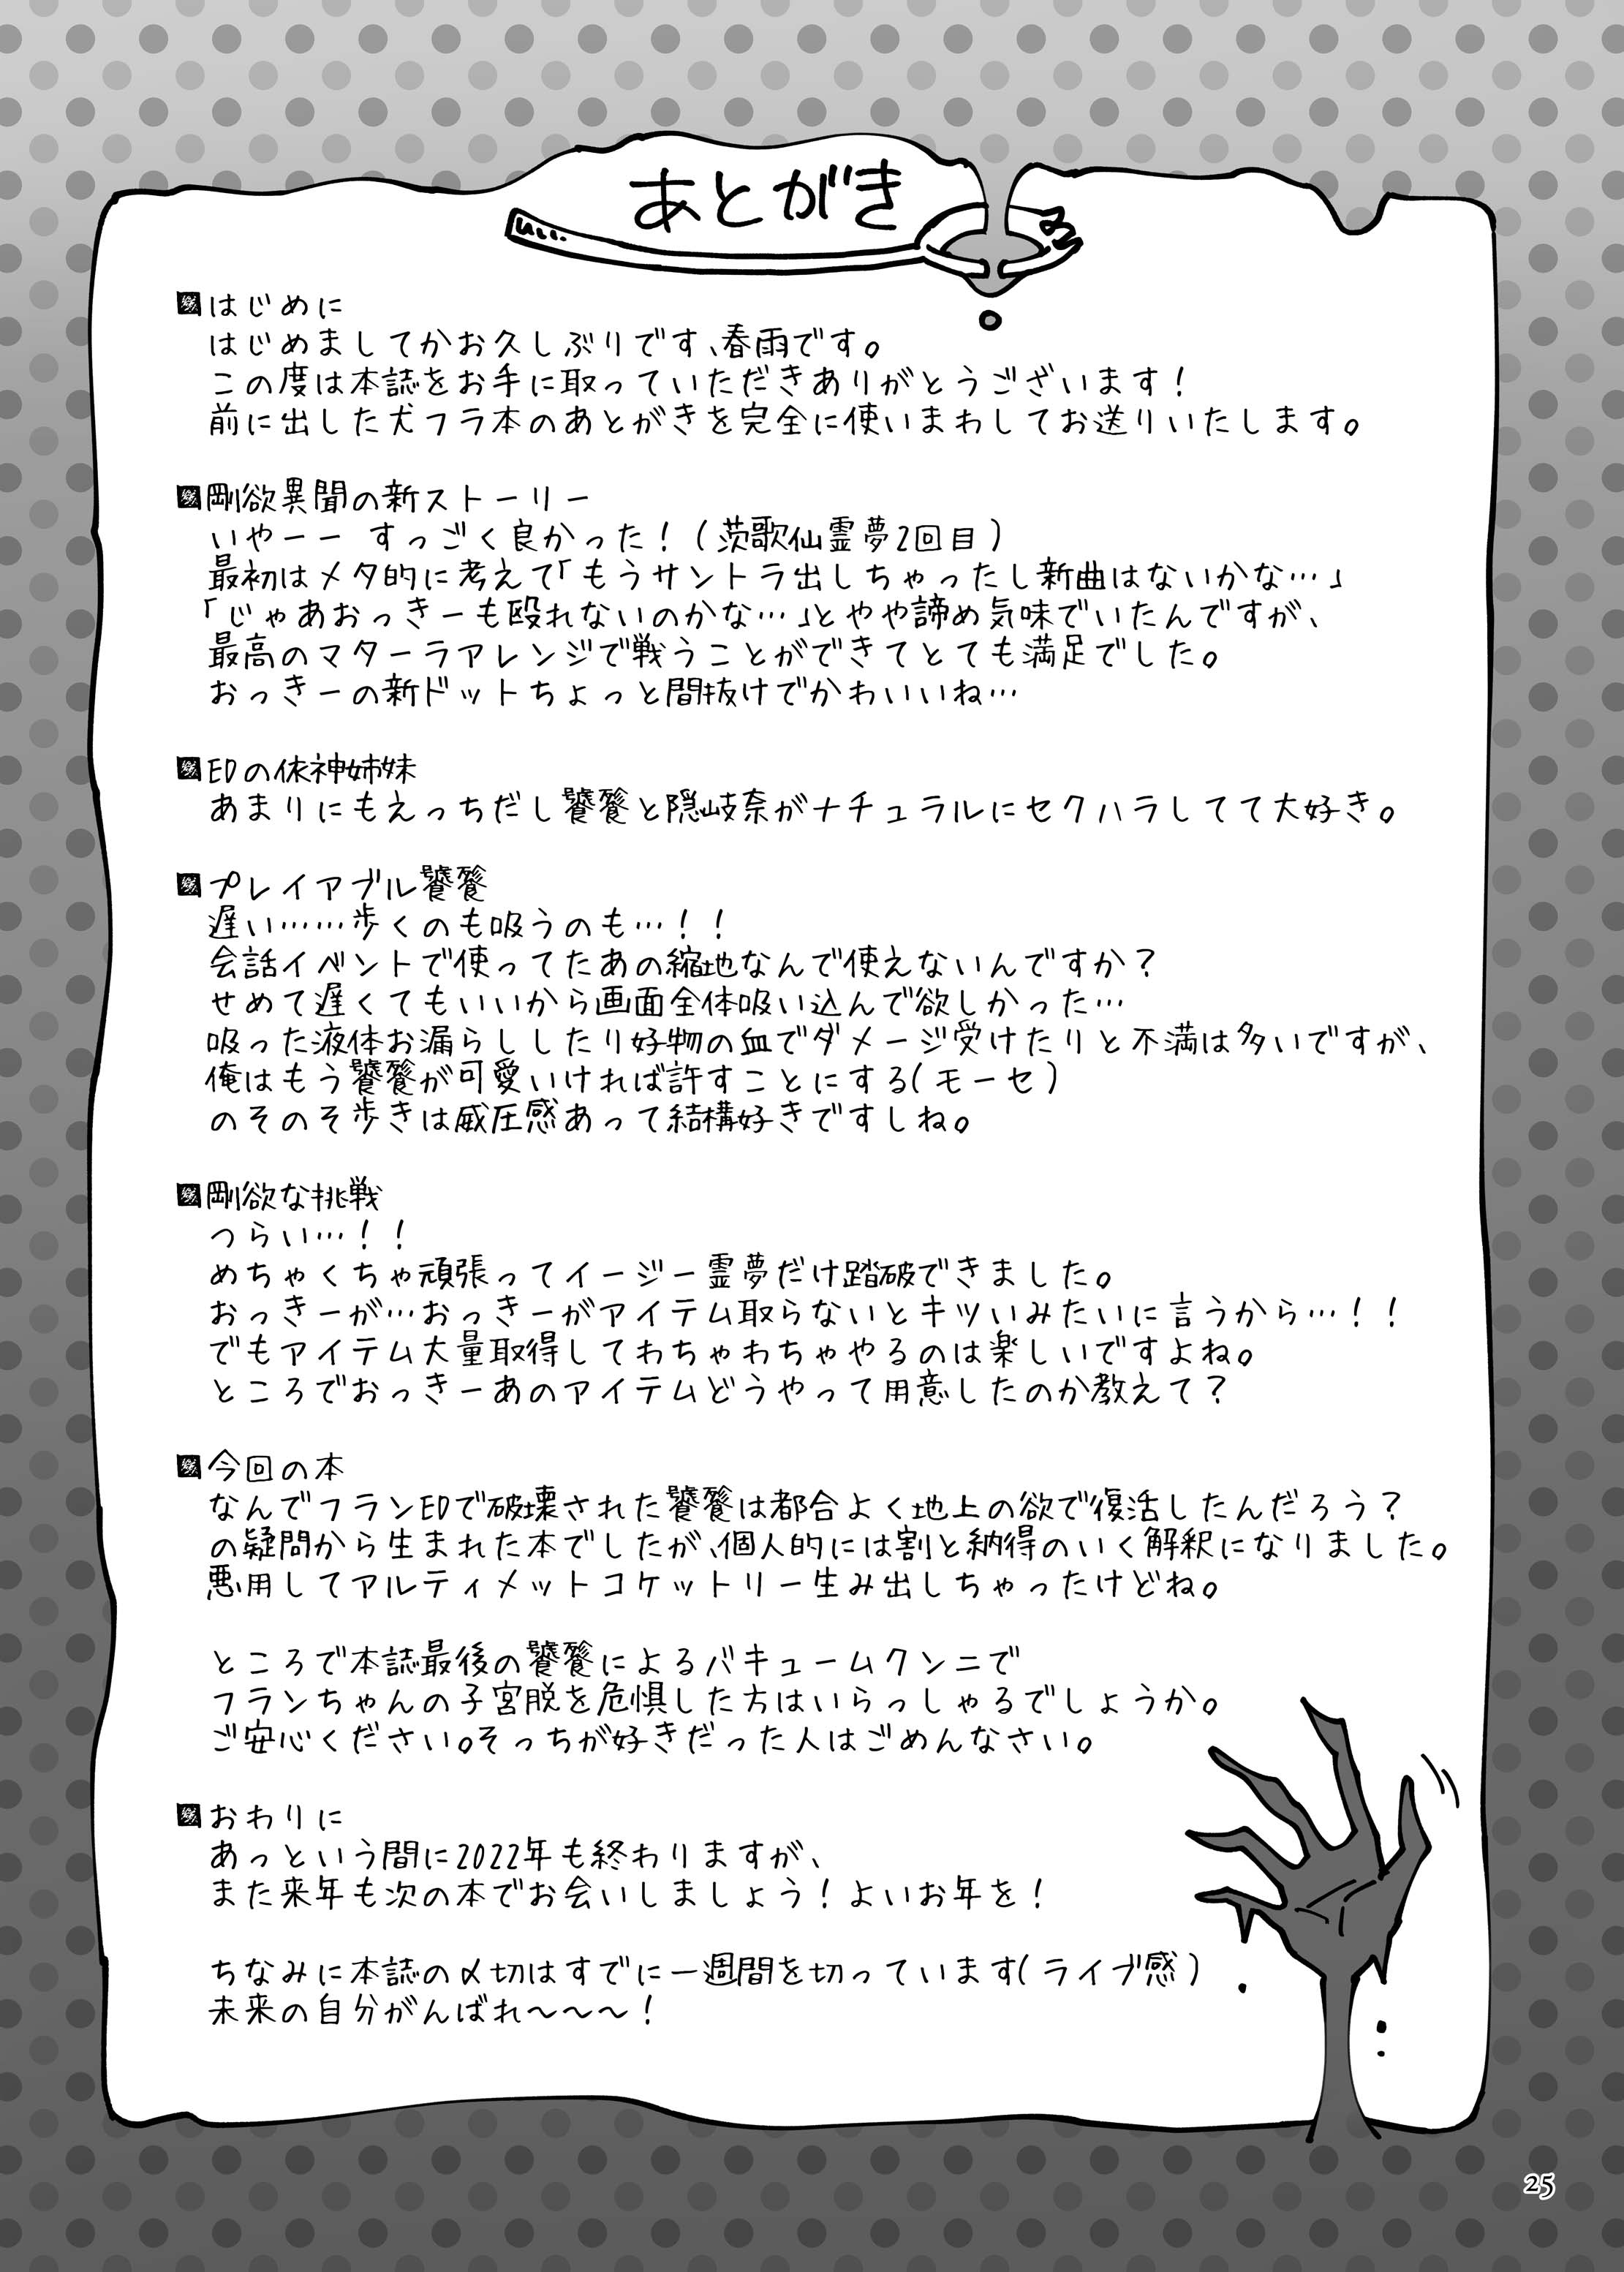 あとがき
はじめに
はじめましてかお久しぶりです、春雨です。
この度は本誌をお手に取っていただきありがとうございます！
前に出した犬フラ本のあとがきを完全に使いまわしてお送りいたします。
剛欲異聞の新ストーリー
いやーー すっごく良かった！(茨歌仙霊夢2回目)
最初はメタ的に考えて「もうサントラ出しちゃったし新曲はないかな…」
「じゃあおっきーも殴れないのかな…」とやや諦め気味でいたんですが、
最高のマターラアレンジで戦うことができてとても満足でした。
おっきーの新ドットちょっと間抜けでかわいいね…
EDの依神姉妹
あまりにもえっちだし饕餮と隠岐奈がナチュラルにセクハラしてて大好き。
プレイアブル饕餮
遅い……歩くのも吸うのも…！！
会話イベントで使ってたあの縮地なんで使えないんですか？
せめて遅くてもいいから画面全体吸い込んで欲しかった…
吸った液体お漏らししたり好物の血でダメージ受けたりと不満は多いですが、
俺はもう饕餮が可愛いければ許すことにする(モーセ)
のそのそ歩きは威圧感あって結構好きですしね。
剛欲な挑戦
つらい…！！
めちゃくちゃ頑張ってイージー霊夢だけ踏破できました。
おっきーが…おっきーがアイテム取らないとキツいみたいに言うから…！！
でもアイテム大量取得してわちゃわちゃやるのは楽しいですよね。
ところでおっきーあのアイテムどうやって用意したのか教えて？
今回の本
なんでフランEDで破壊された饕餮は都合よく地上の欲で復活したんだろう？
の疑問から生まれた本でしたが、個人的には割と納得のいく解釈になりました。
悪用してアルティメットコケットリー生み出しちゃったけどね。
ところで本誌最後の饕餮によるバキュームクンニで
フランちゃんの子宮脱を危惧した方はいらっしゃるでしょうか。
ご安心ください。そっちが好きだった人はごめんなさい。
おわりに
あっという間に2022年も終わりますが、
また来年も次の本でお会いしましょう！よいお年を！
ちなみに本誌の〆切はすでに一週間を切っています(ライブ感)
未来の自分がんばれ～～～！
25